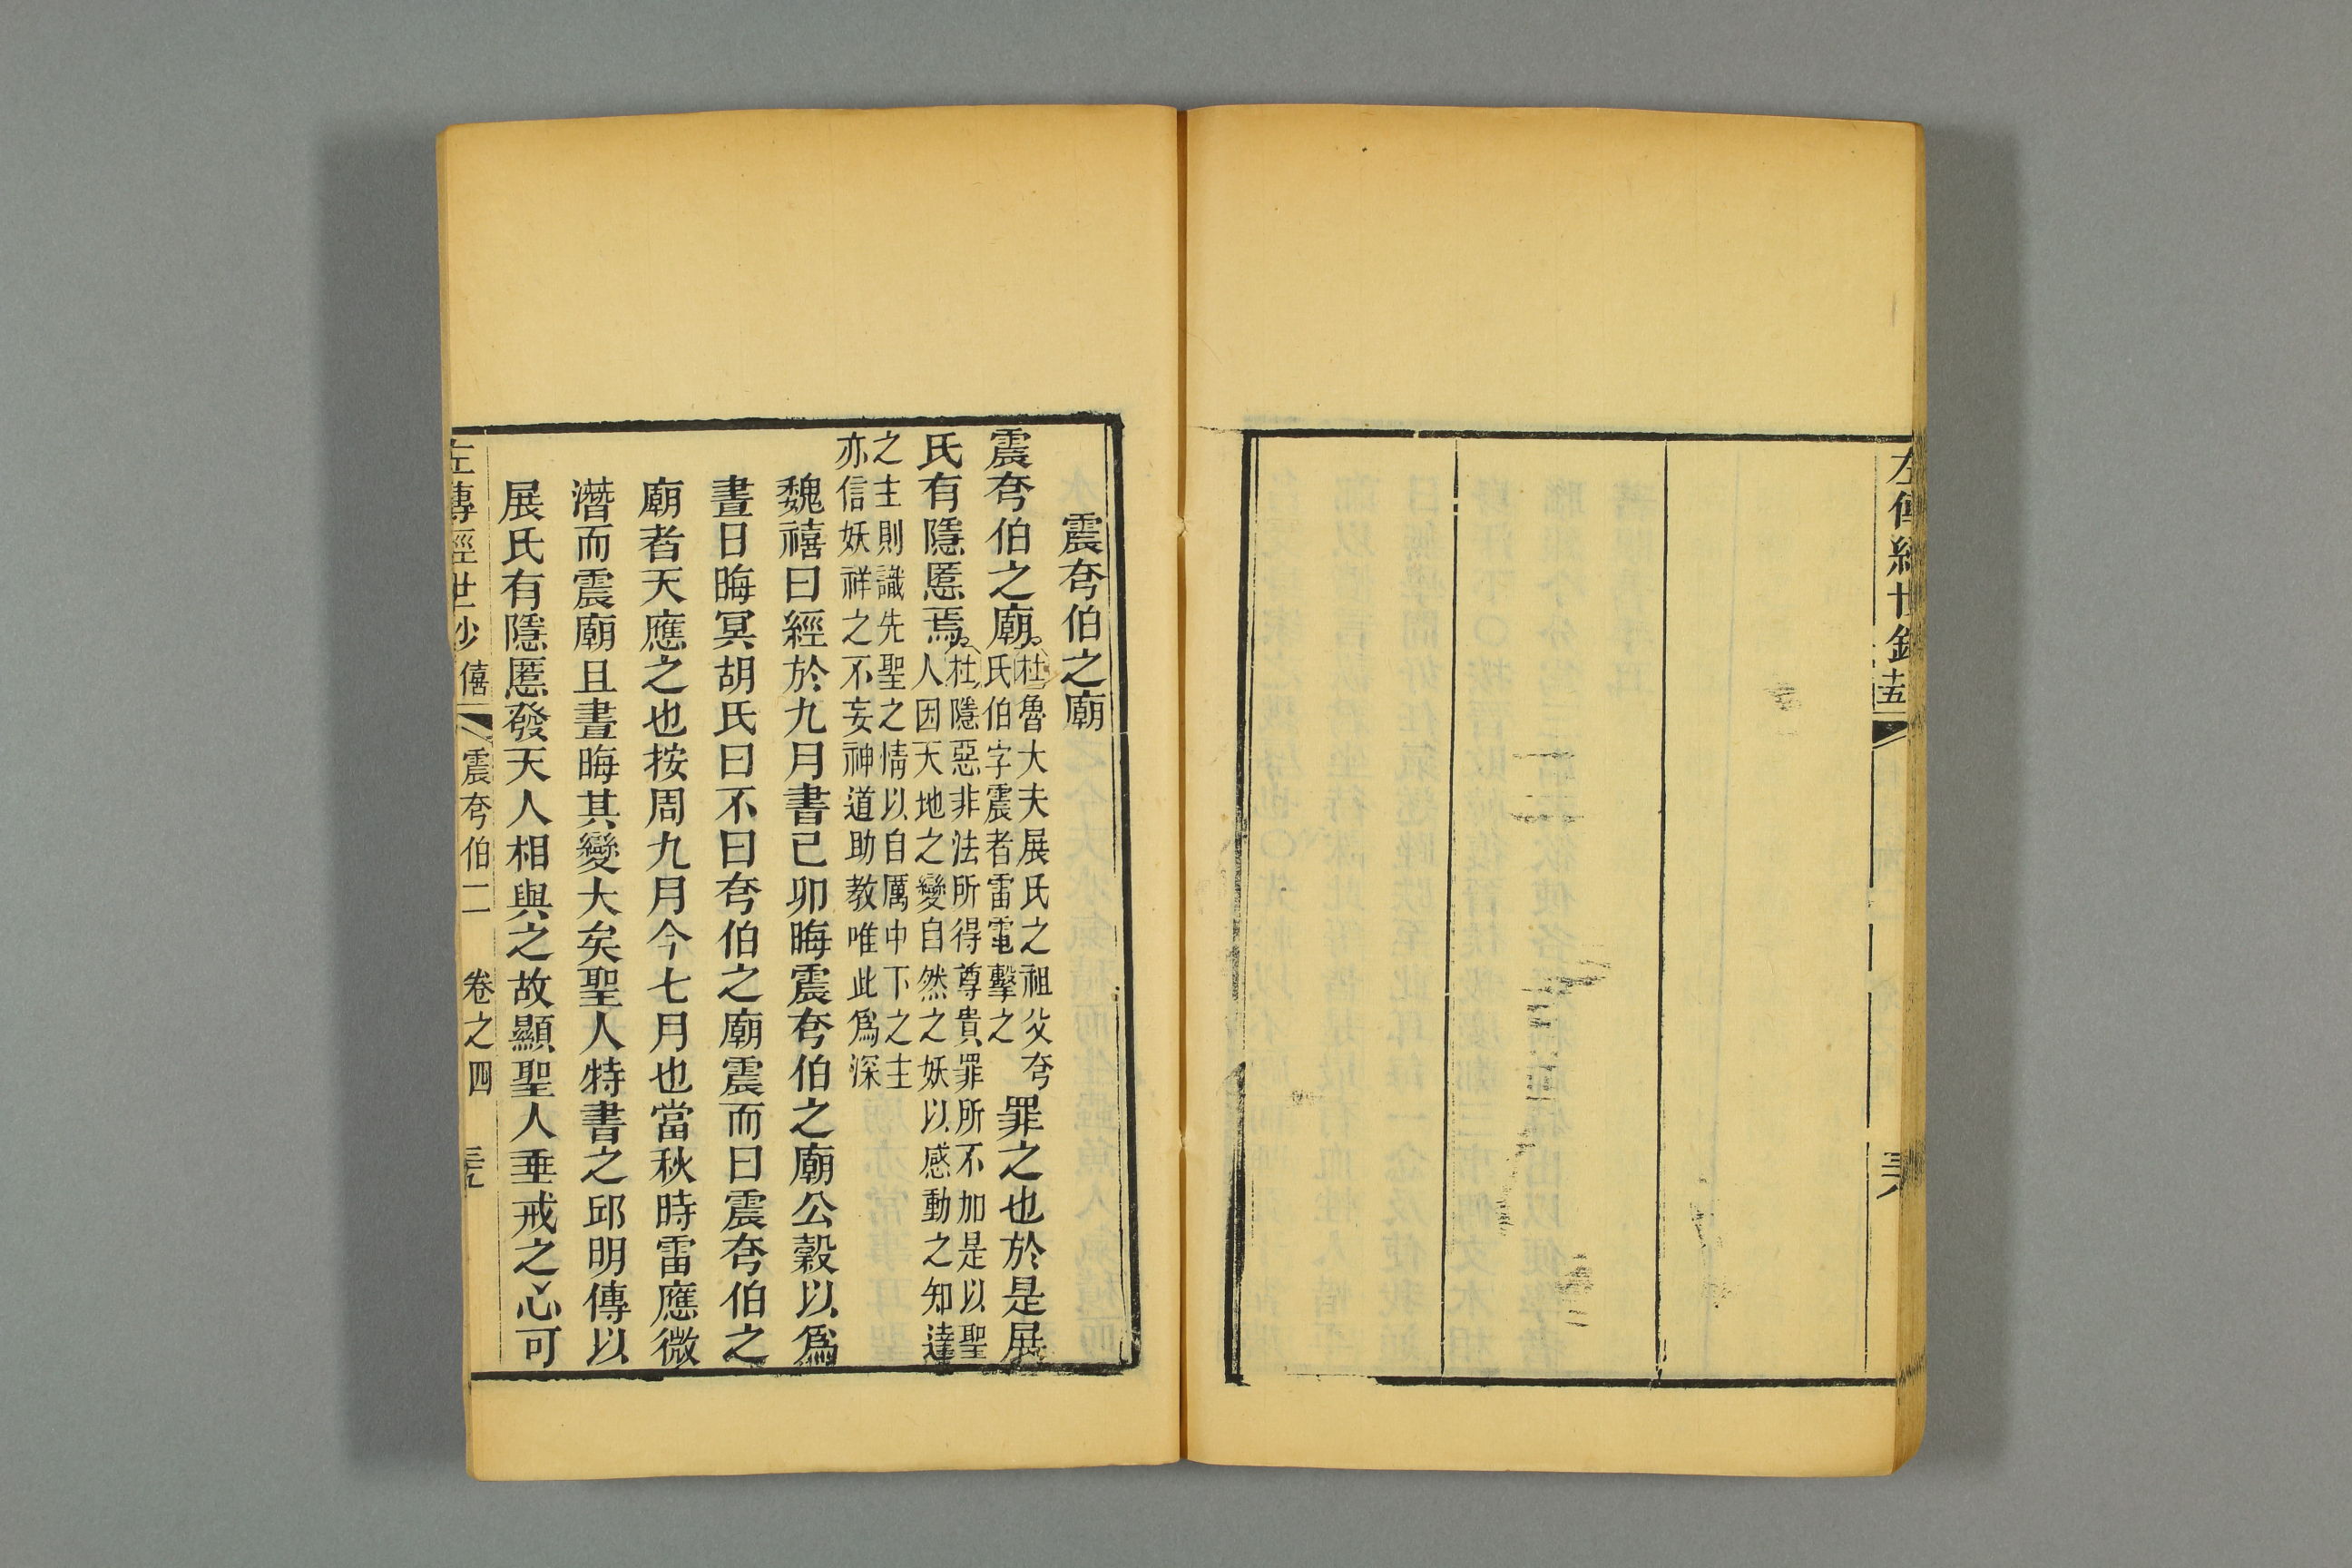 左傳經世鈔
十五
三六
震夸伯之廟
震夸伯之廟杜魯大夫展氏之祖父夸氏伯字震者雷電擊之罪之也於是展
氏有隱慝焉杜隱惡非法所得尊貴罪所不加是以聖人因天地之變自然之妖以感動之知達
之主則識先聖之情以自厲中下之主亦信妖祥之不妄神道助教唯此爲深
魏禧曰經於九月書己卯晦震夸伯之廟公穀以爲
晝日晦冥胡氏曰不曰夸伯之廟震而曰震夸伯之
廟者天應之也按周九月今七月也當秋時雷應微
潛而震廟且晝晦其變大矣聖人特書之邱明傳以
展氏有隱慝發天人相與之故顯聖人垂戒之心可
左傳經世鈔 僖 震夸伯二 卷之四